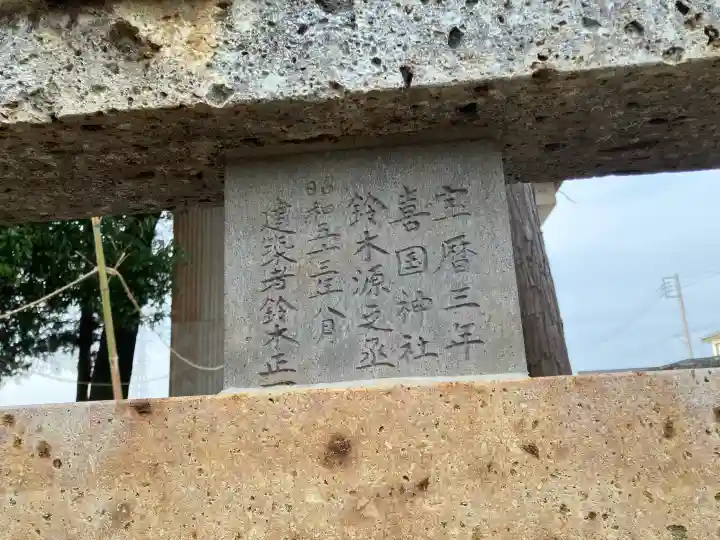 宝暦三年
喜国神社
鈴木源之丞
昭和五十三年八月
建築者鈴木正一